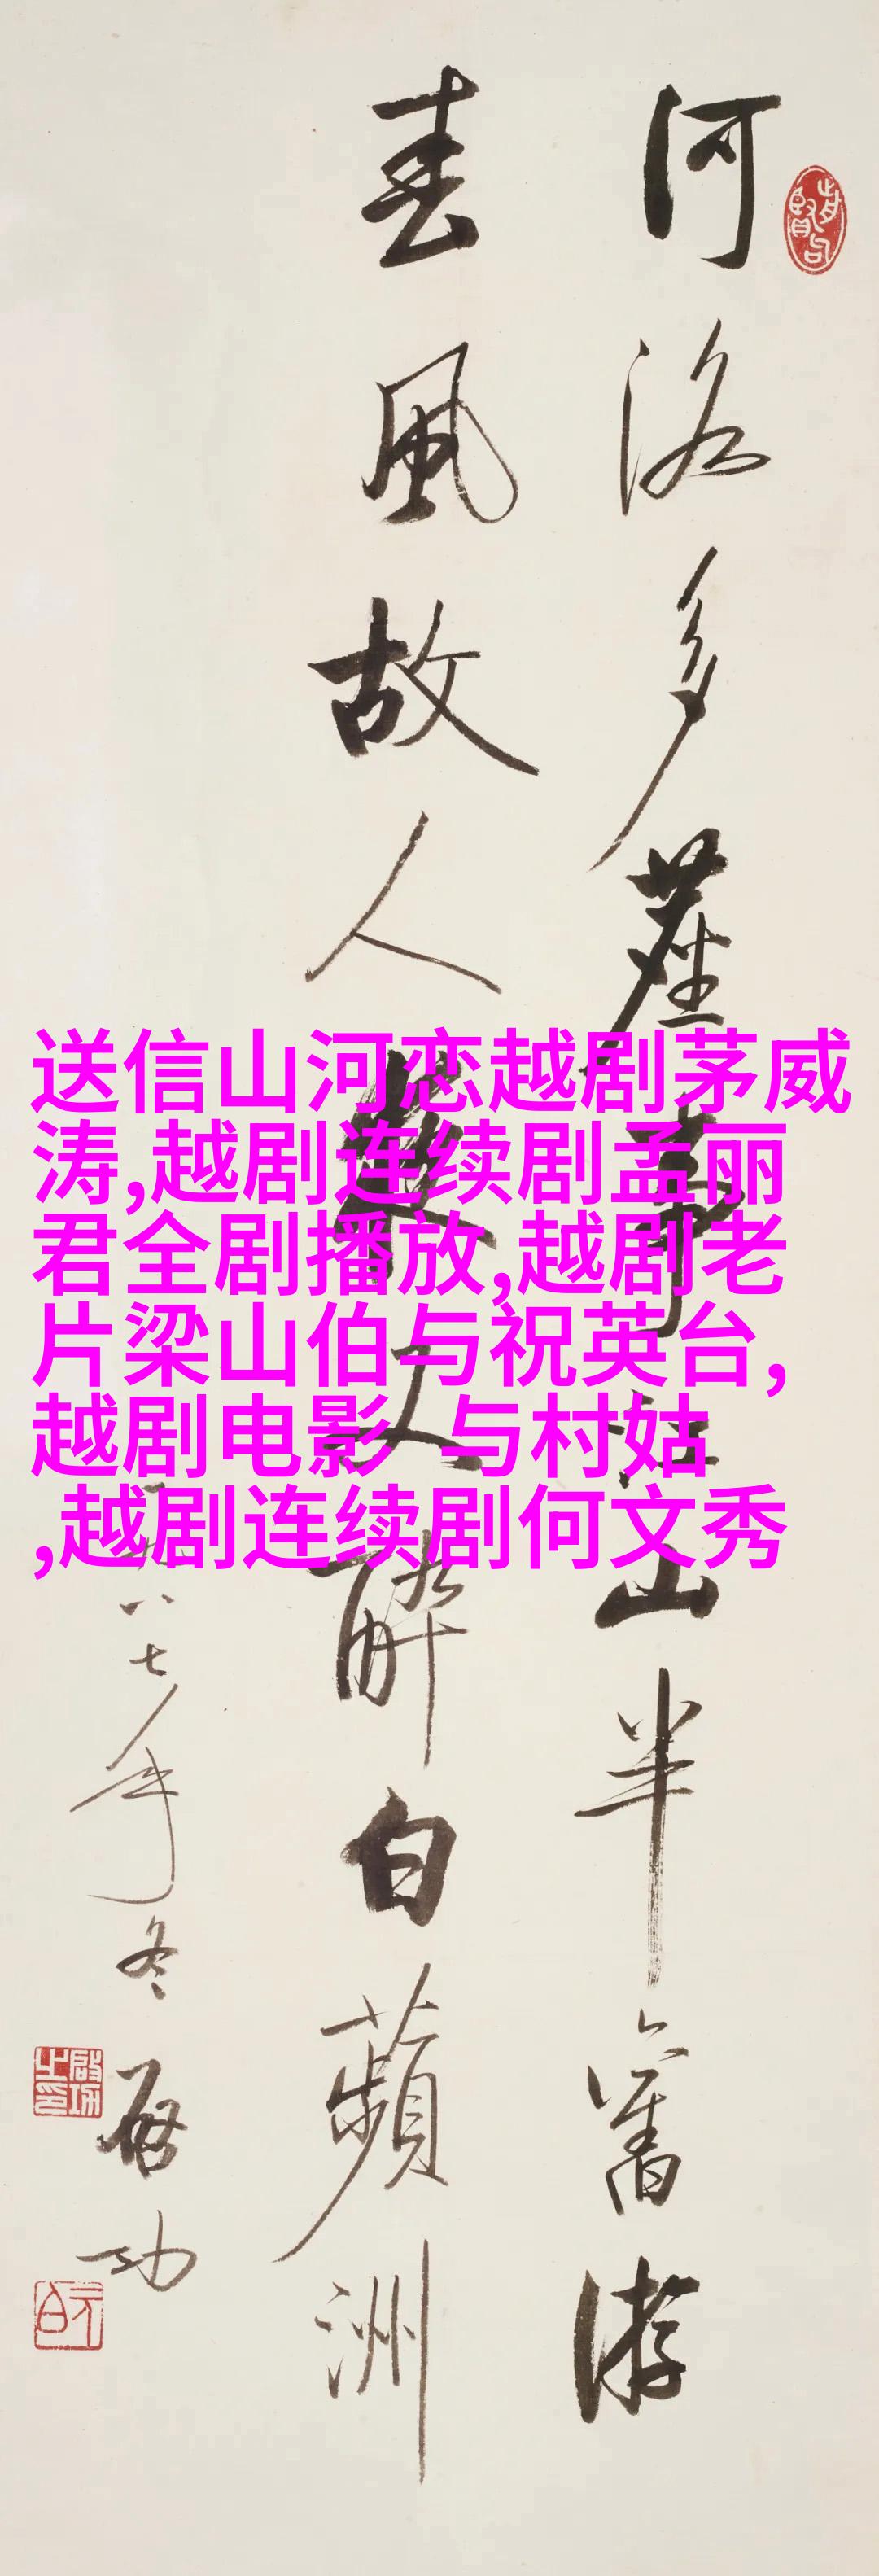 河洛多塵事江山半舊游
春風故人夜又醉白蘋洲
一九八七年冬 啓功
啓功之印
元白
送信山河恋越剧茅威
涛,越剧连续剧孟丽
君全剧播放,越剧老
片梁山伯与祝英台,
越剧电影 与村姑
,越剧连续剧何文秀